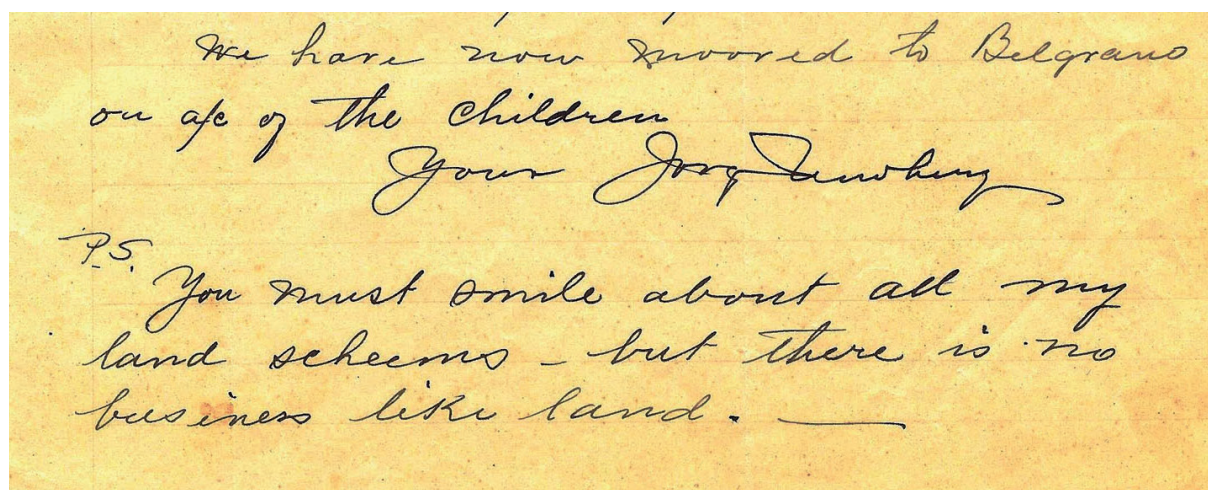 We have now moored to Belgrano
on a/c of the children
Your Jorge Newbery
P.S.
You must smile about all my
land scheems - but there is no
business like land. —